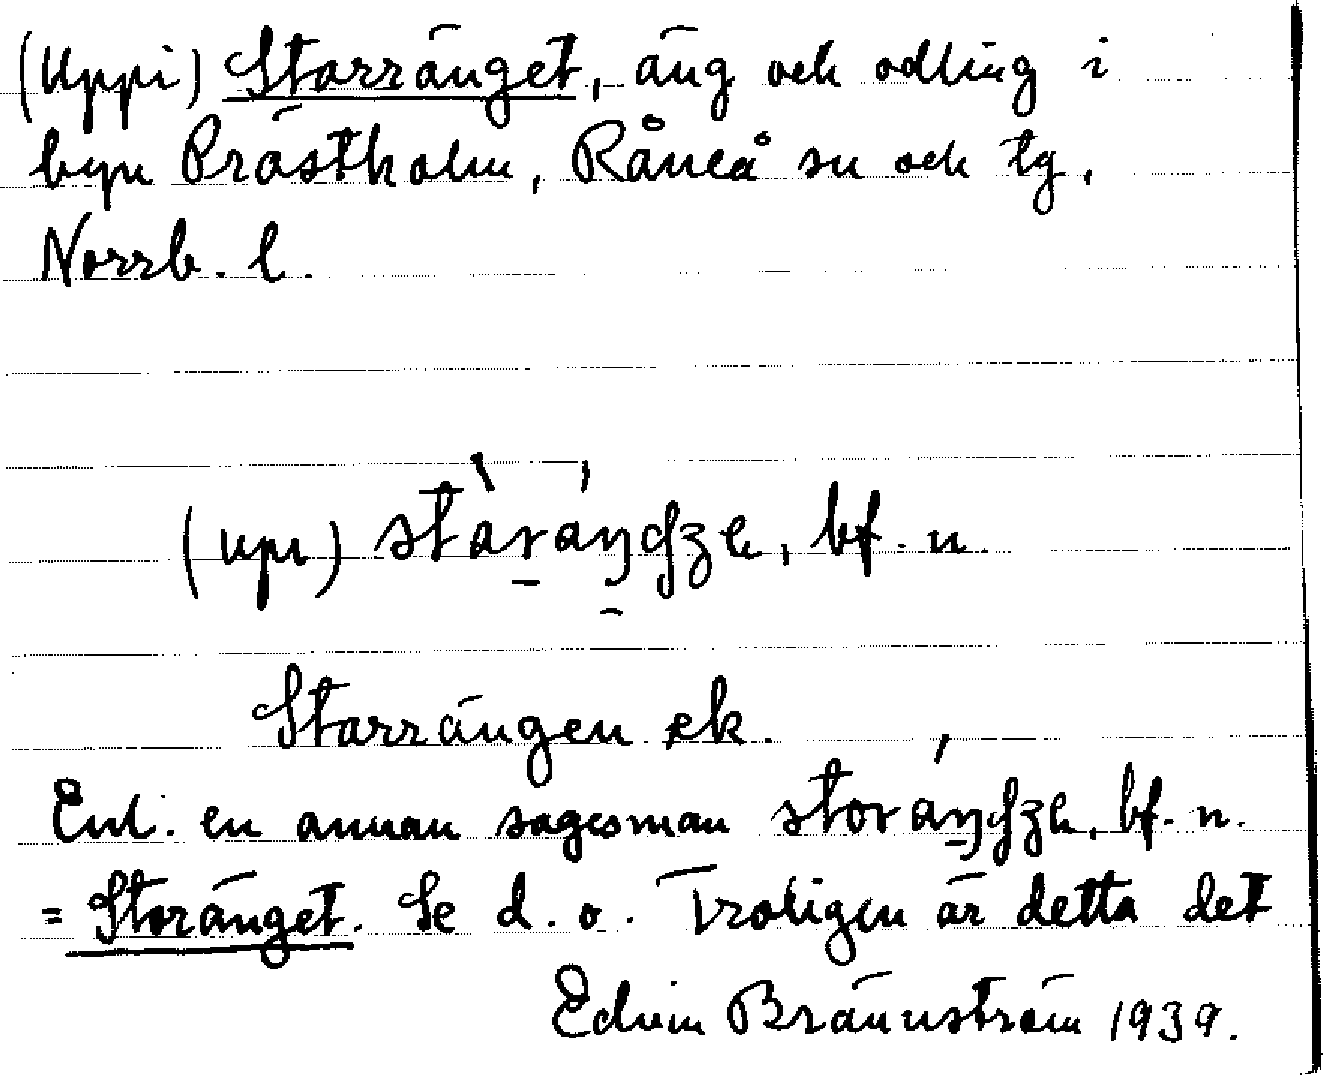 (Uppi) Starränget, äng och odling i
byn Prästholm, Råneå sn och tg,
Norrb. l.
(upı) , bf. n.
Starrängen ek.
Enl. en annan sagesman , bf. n.
= Storänget. Se d. o. Troligen är detta det
Edvin Brännström 1939.